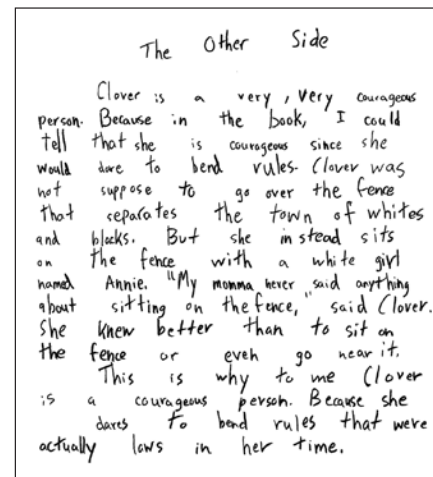 The Other Side
Clover is a very, very courageous
person. Because in the book, I could
tell that she is courageous since she
would dare to bend rules. Clover was
not suppose to go over the fence
that separates the town of whites
and blacks. But she in stead sits
on the fence with a white girl
named Annie. "My momma never said anything
about sitting on the fence," said Clover.
She knew better than to sit on
the fence or even go near it.
This is why to me Clover
is a courageous person. Because she
dares to bend rules that were
actually laws in her time.